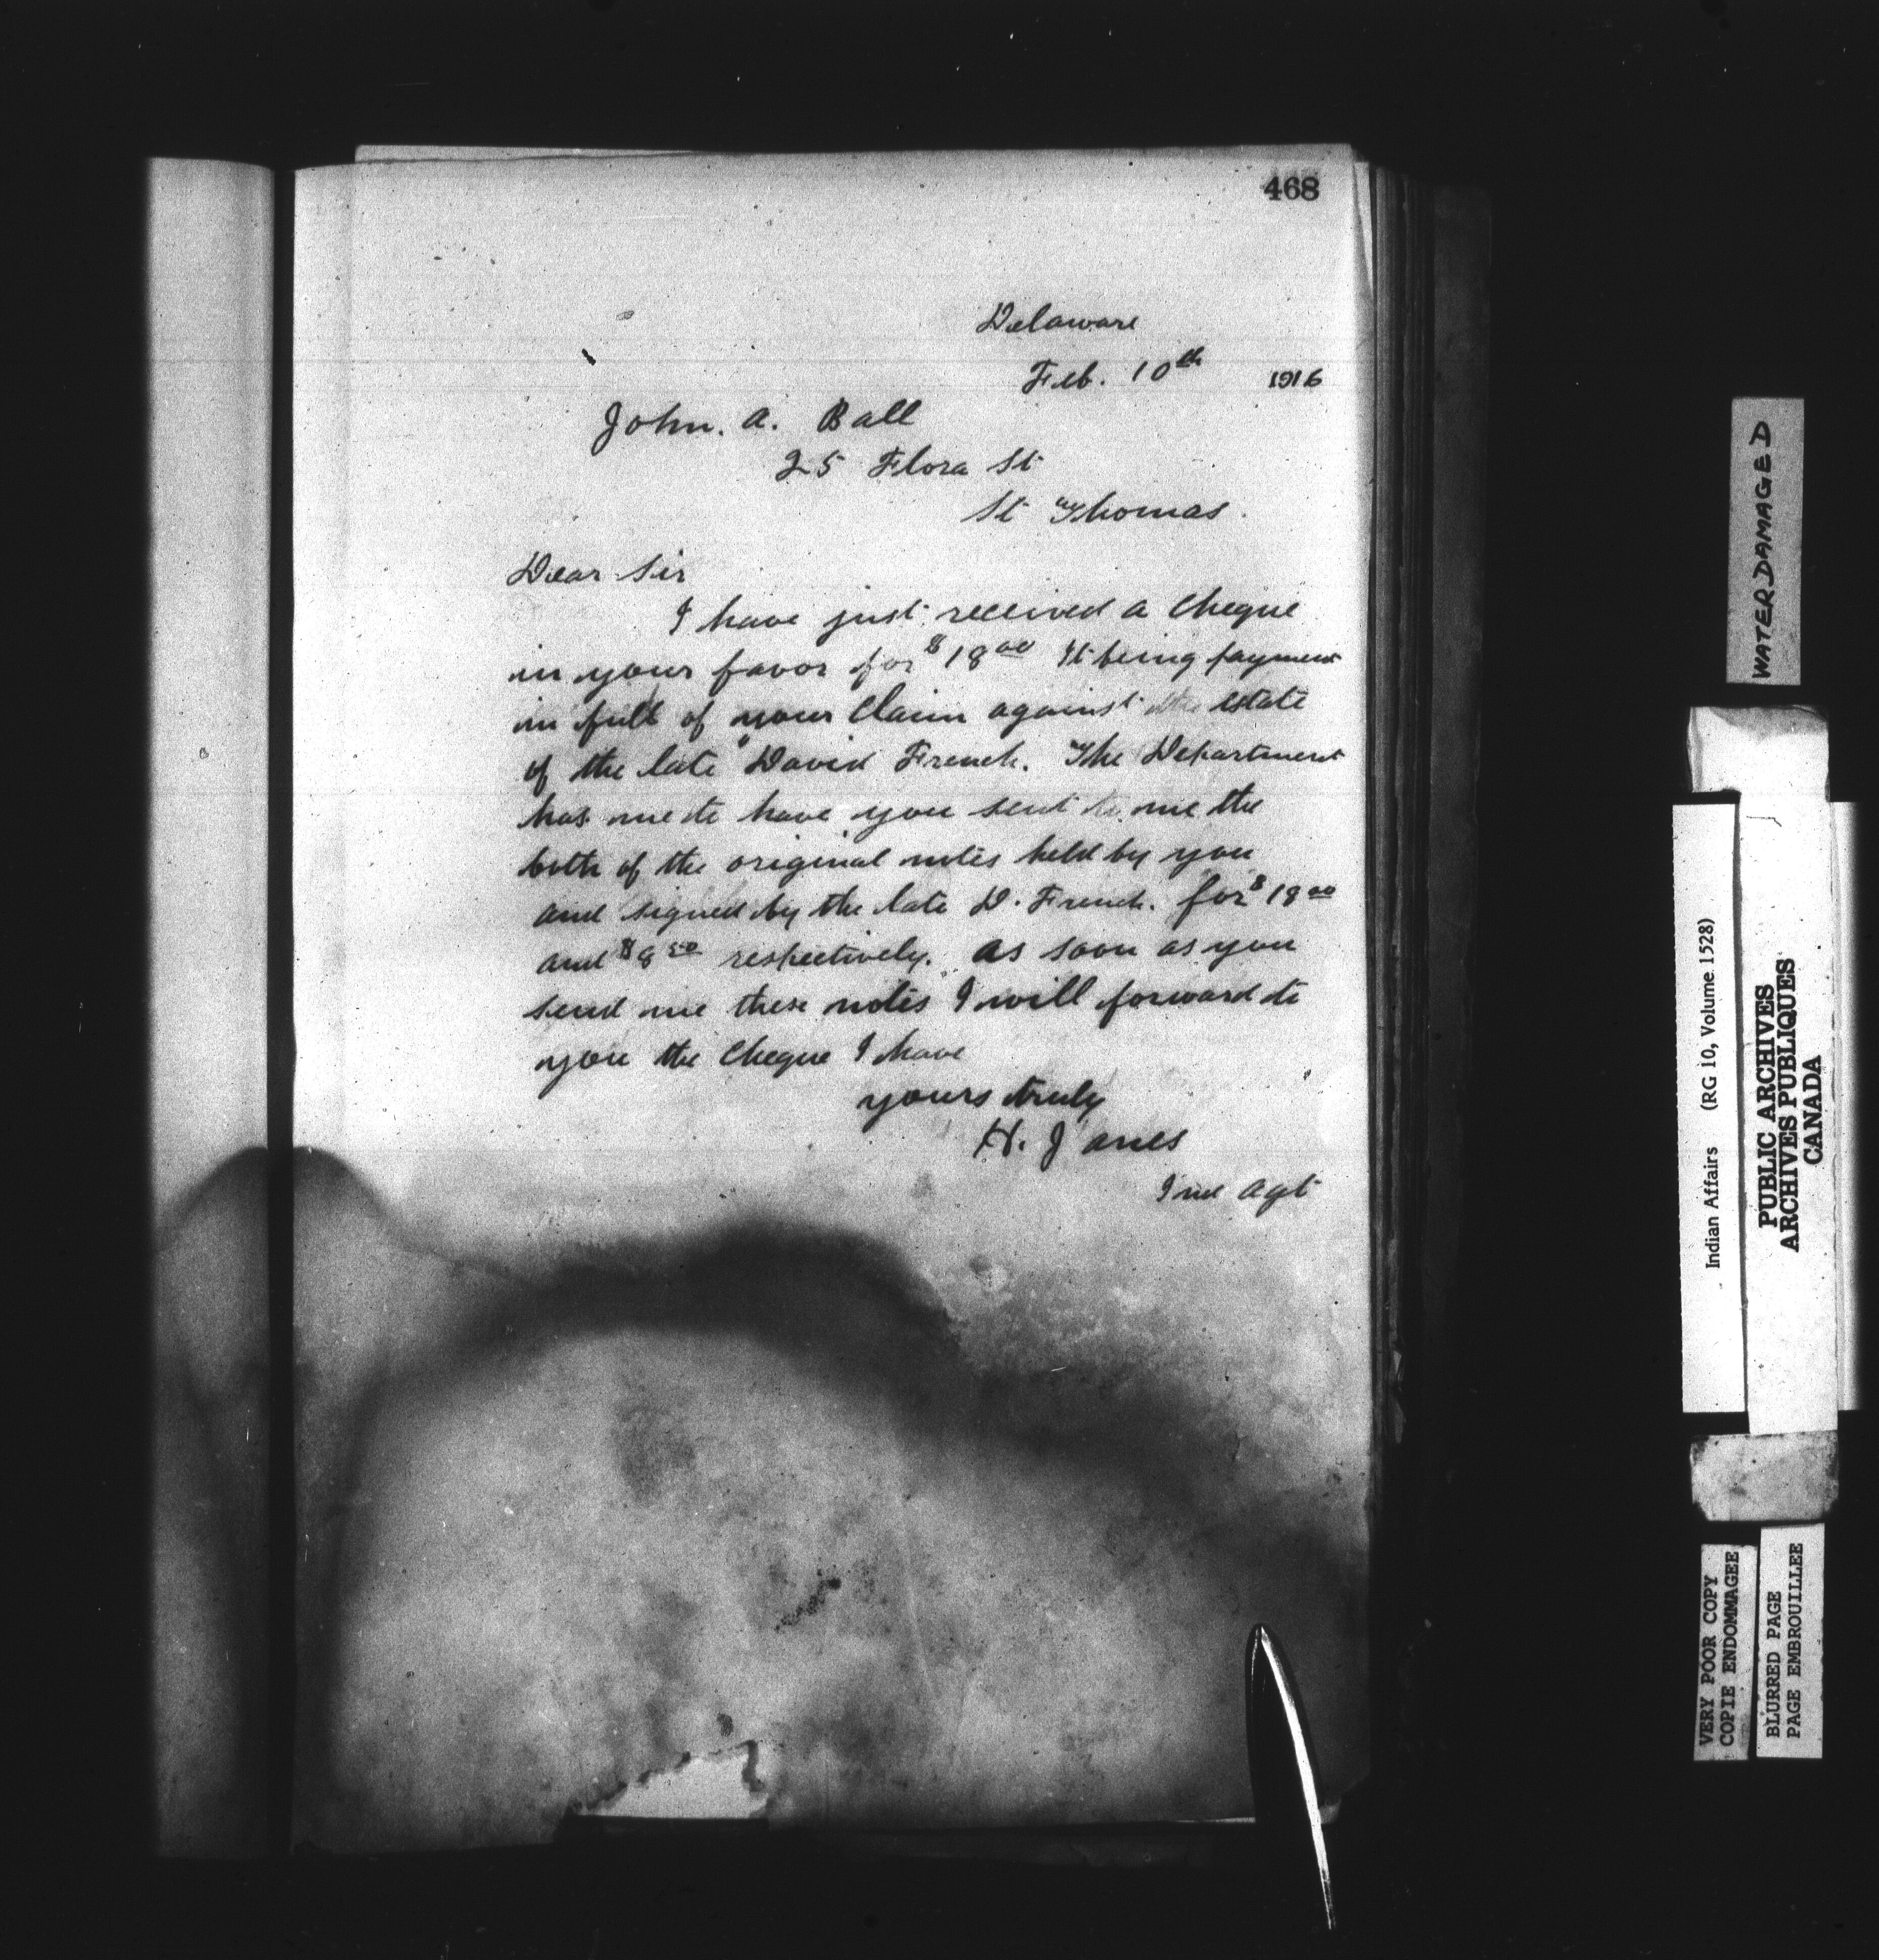 468
Delaware
Feb. 10th 1916
John. A. Ball
25 Flora St
St Thomas.
Dear Sir
I have just received a Cheque
in your favor for $18 00 It being payment
in full of your Claim against the estate
of the late David French. The Department
has me to have you sent to me the
both of the original notes held by you
and signed by the late D. French. for $18 00
and $8 50 respectively. as soon as you
send me these notes I will forward to
you the Cheque I have
yours truly
H. Janes
Ind Agt
WATER DAMAGED
Indian Affairs (RG 10, Volume 1528)
PUBLIC ARCHIVES
ARCHIVES PUBLIQUES
CANADA
VERY POOR COPY
COPIE ENDOMMAGEE
BLURRED PAGE
PAGE EMBROUILLEE